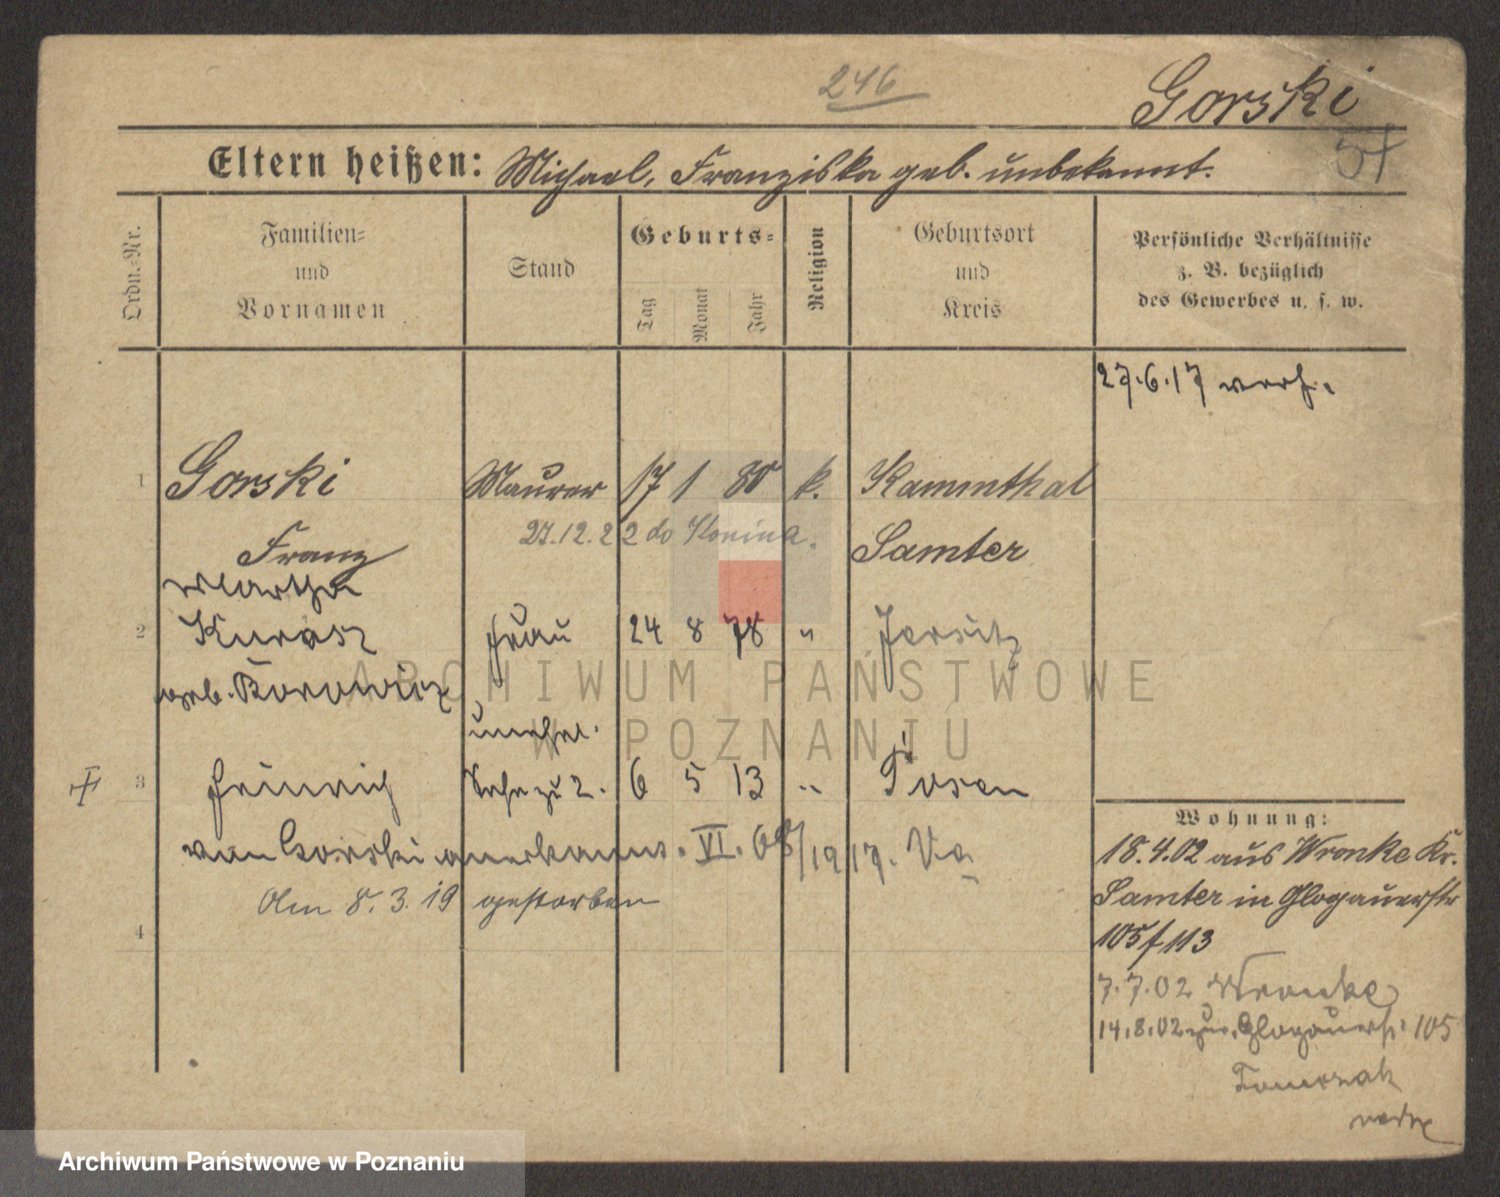 246
Gorski
57
Eltern heißen: Michael, Franziska geb. unbekannt.
Ordn.-Nr.
Familien-
und
Vornamen
Stand
Geburts-
Tag
Monat
Jahr
Religion
Geburtsort
und
Kreis
Persönliche Verhältnisse
z. B. bezüglich
des Gewerbes u. s. w.
27.6.17 verh.
1 Gorski Maurer 17 1 80 k. Kammthal
27.12.22 do Konina.
Franz Samter
Martha
2 Kurasz Frau 24 8 78 " Jersitz
geb. Borowicz
unehel.
3 Heinrich Sohn zu 2. 6 5 13 " Posen
von Gorski anerkannt. VI. 68/1917. Va
Am 8.3.19 gestorben
4
Wohnung:
18.4.02 aus Wronke Kr.
Samter in Glogauerstr
105/113
7.7.02 Wronke
14.8.02 zur. Glogauerstr. 105
ARCHIWUM PAŃSTWOWE
W POZNANIU
Archiwum Państwowe w Poznaniu